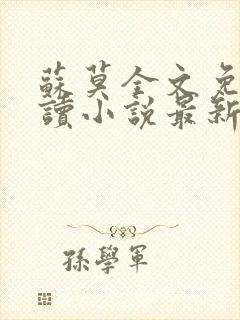 蘇莫全文免
讀小說最新
孫學軍